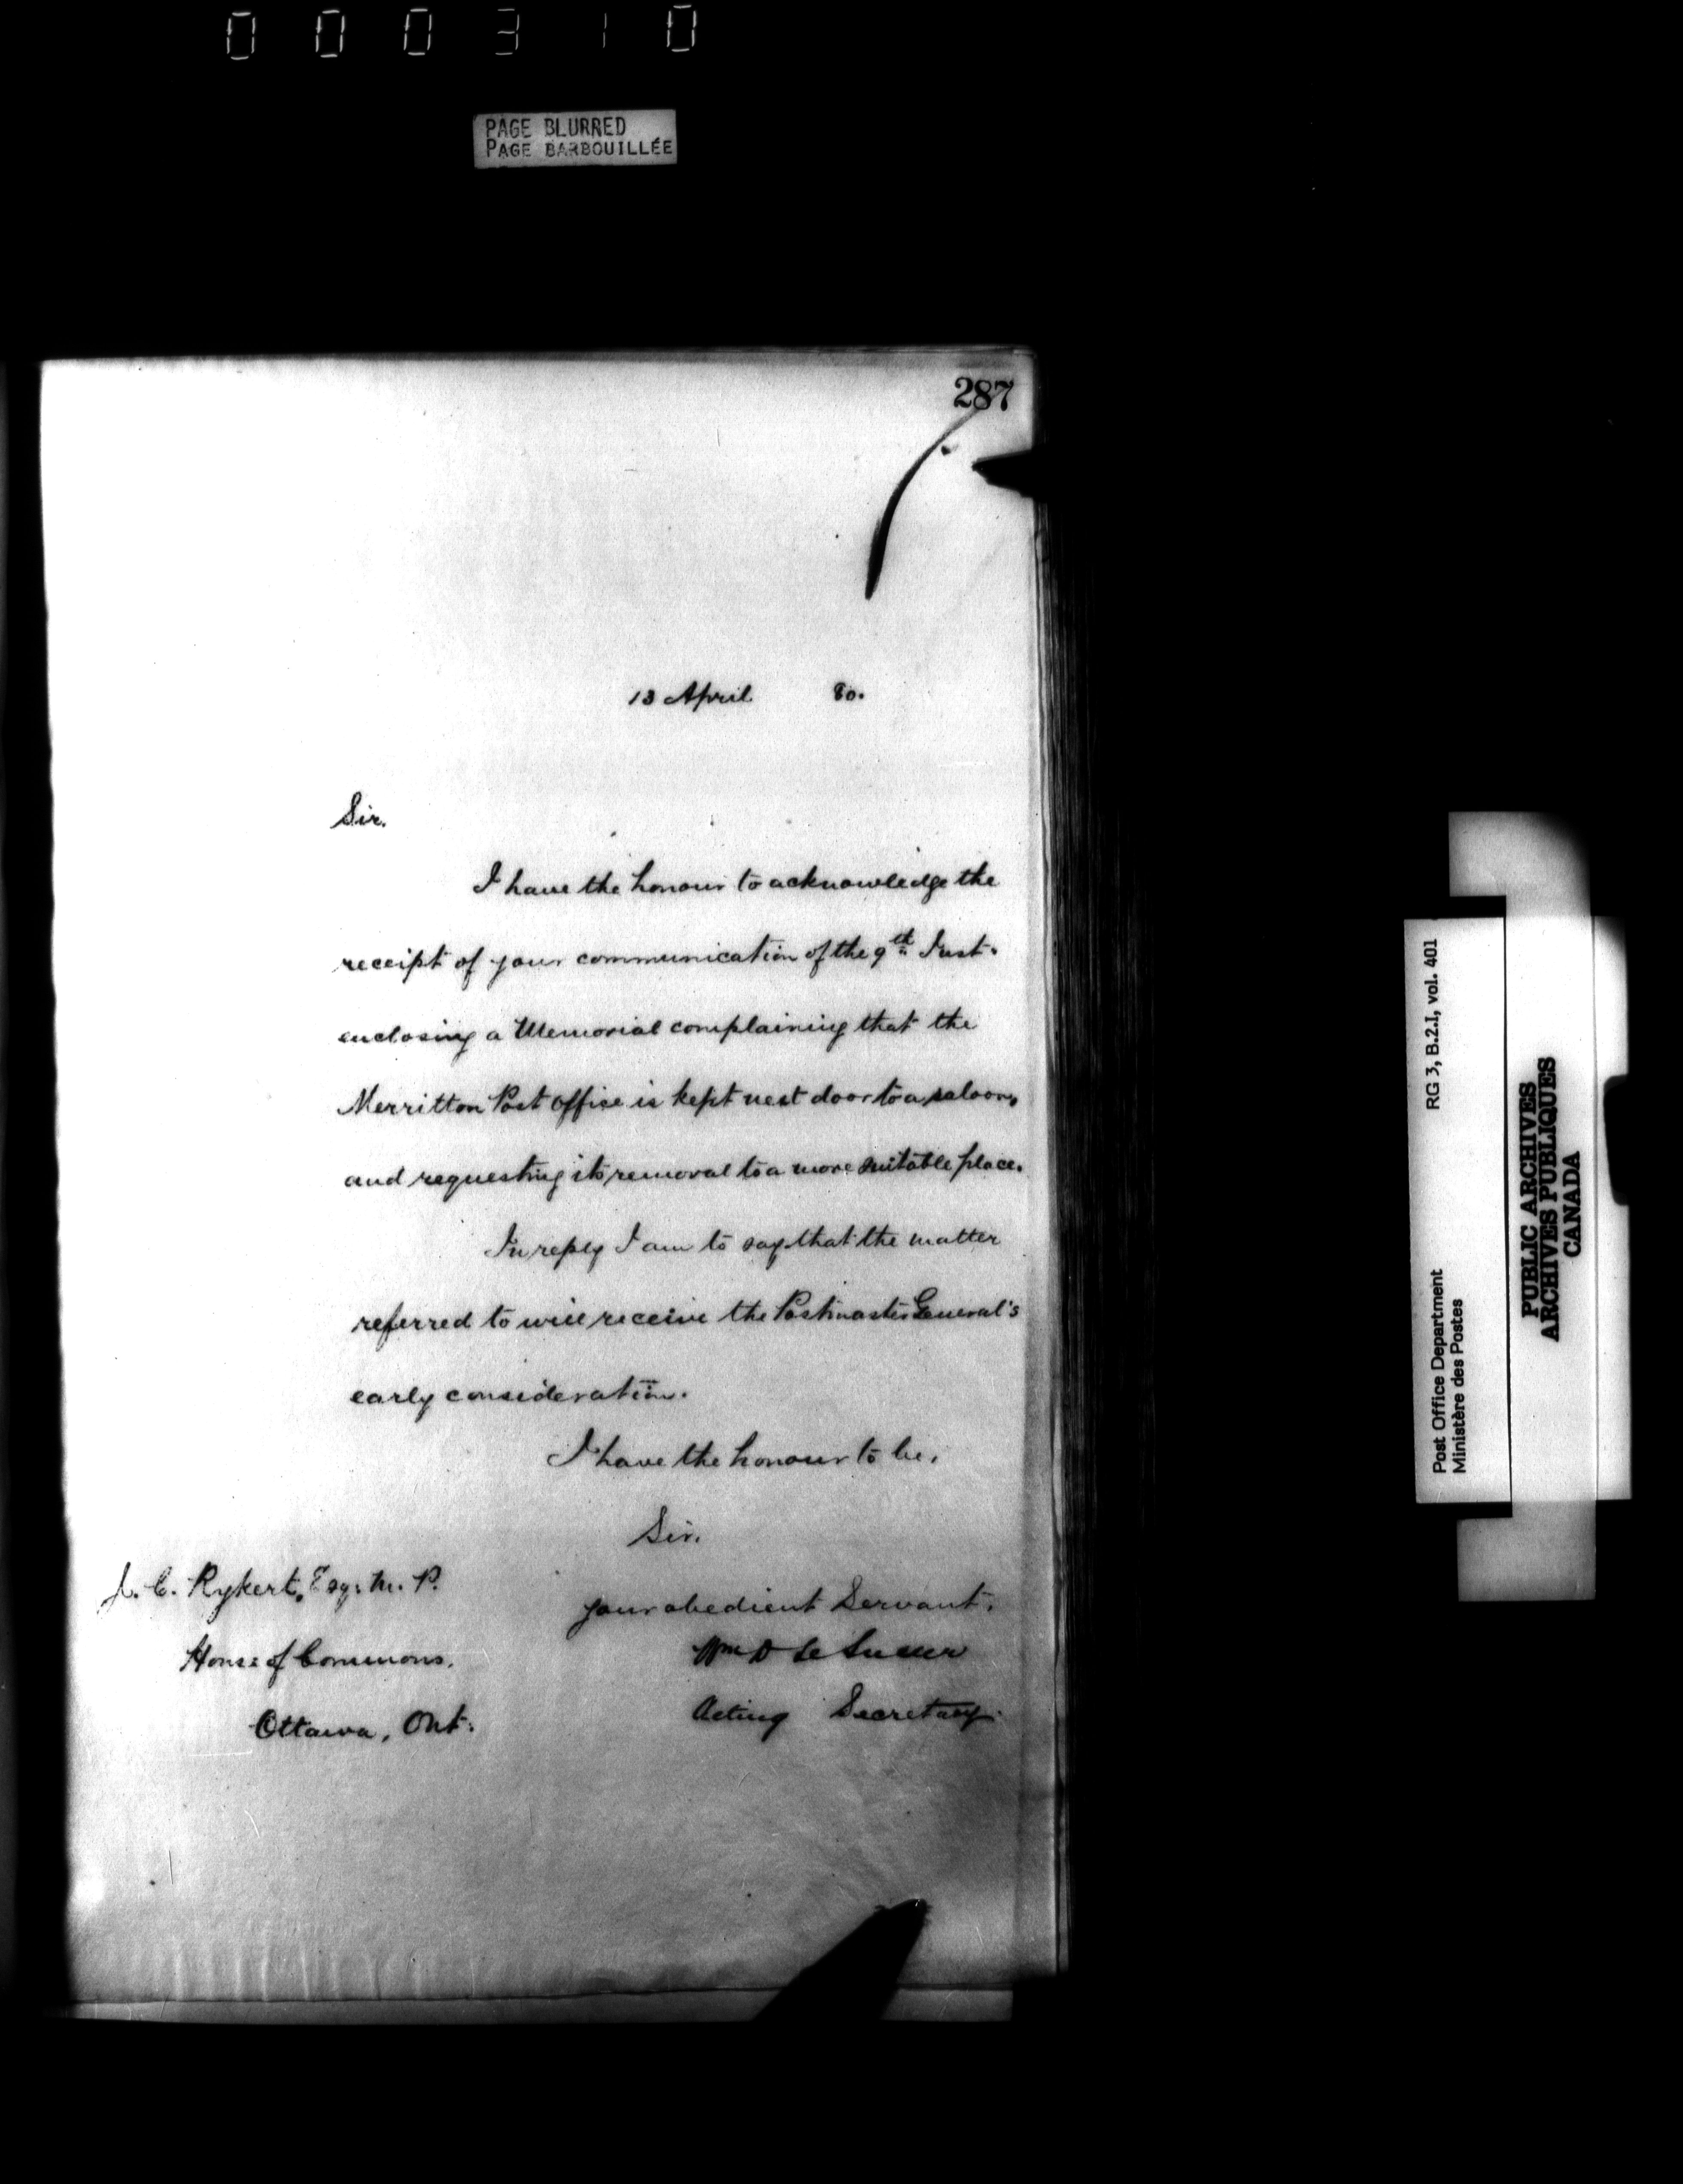 000310
PAGE BLURRED
PAGE BARBOUILLÉE
287
13 April 80.
Sir.
I have the honour to acknowledge the
receipt of your communication of the 9th Inst.
enclosing a Memorial complaining that the
Merritton Post Office is kept next door to a saloon,
and requesting its removal to a more suitable place.
In reply I am to say that the matter
referred to will receive the Postmaster General's
early consideration.
I have the honour to be,
Sir,
your obedient Servant,
Wm D Le Sueur
Acting Secretary.
J. C. Rykert, Esq. M. P.
House of Commons,
Ottawa, Ont.
Post Office Department RG 3, B.2.I, vol. 401
Ministère des Postes
PUBLIC ARCHIVES
ARCHIVES PUBLIQUES
CANADA